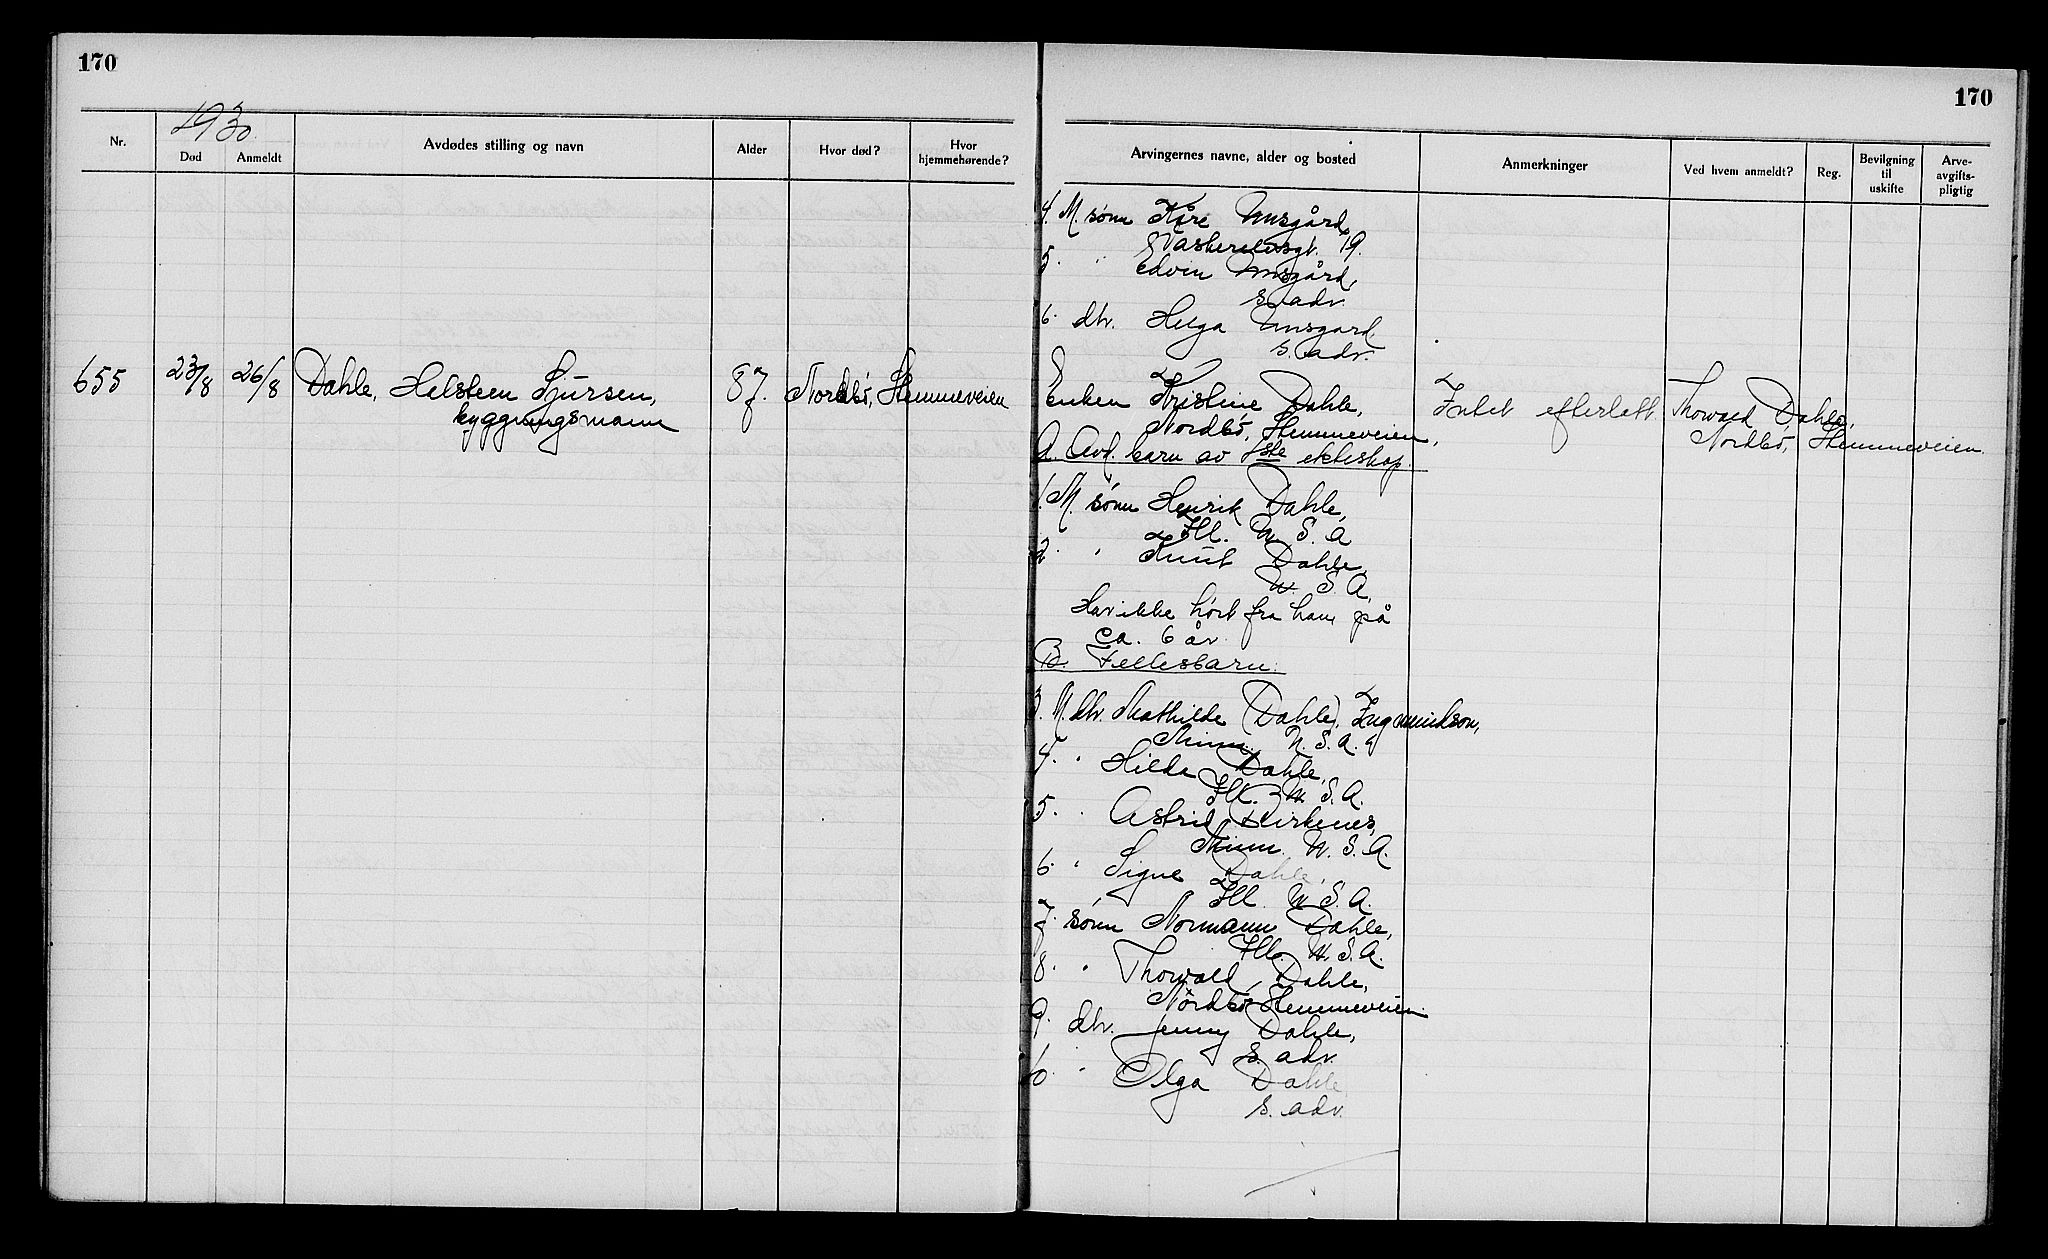 170
170
1930
Nr.
Død
Anmeldt
Avdødes stilling og navn
Alder
Hvor død?
Hvor
hjemmehørende?
Arvingernes navne, alder og bosted
Anmerkninger
Ved hvem anmeldt?
Reg.
Bevilgning
til
uskifte
Arve-
avgifts-
pligtig
4. M. sønn Kåre Unsgård,
19.
5. " Edvin Unsgård,
s. adr.
6. dtr. Helga Unsgard
s. adr.
655 23/8 26/8 Dahle, Halsteen Sjursen, 87. Nordbø, Hemmeveien
byggningsmann
Enken Kristine Dahle,
Nordbø, Hemmeveien,
Intet efterlatt.
Thorvald Dahle,
Nordbø, Hemmeveien.
A. Avd. barn av 1ste ekteskap.
1. M. sønn Henrik Dahle,
Ill. U. S. A
2. " Knut Dahle,
U. S. A.
Har ikke hørt fra ham på
ca. 6 år.
B. Fellesbarn:
3. M. dtr. Mathilde (Dahle) Ingmundson,
Minn. U. S. A.
4. " Hilda Dahle,
Ill. U. S. A.
5. " Astrid Birkenes,
Minn. U. S. A.
6. " Signe Dahle,
Ill. U. S. A.
7. sønn Normann Dahle,
Ill. U. S. A.
8. " Thorvald Dahle,
Nordbø Hemmeveien.
9. dtr. Jenny Dahle,
s. adr.
10. " Olga Dahle
s. adr.